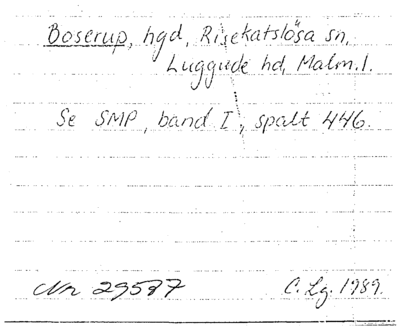 Boserup, hgd, Risekatslösa sn,
Luggude hd, Malm.l.
Se SMP, band I, spalt 446.
Nr 29587 C. Lg. 1989.